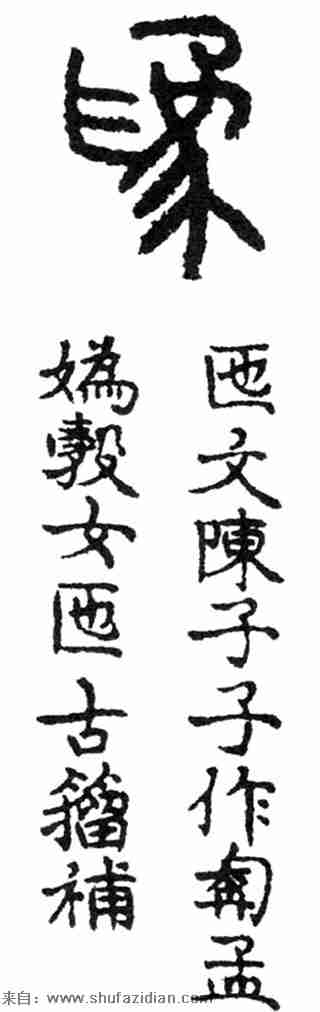 匜文陳子子作孟
媯女匜古籀補
来自：www.shufazidian.com